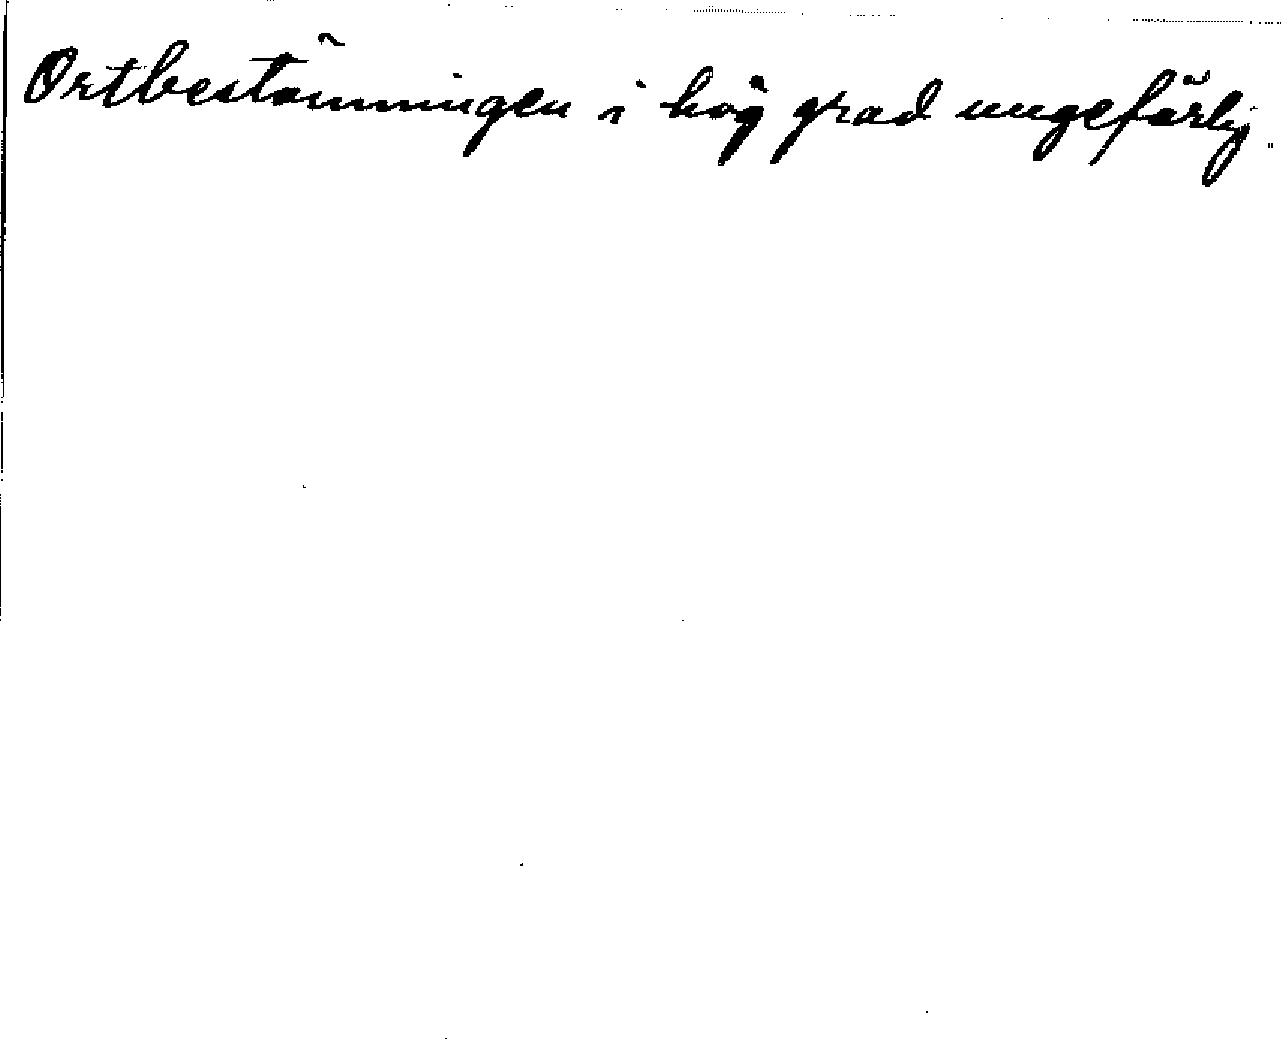 Ortbestämningen i hög grad ungefärlig.